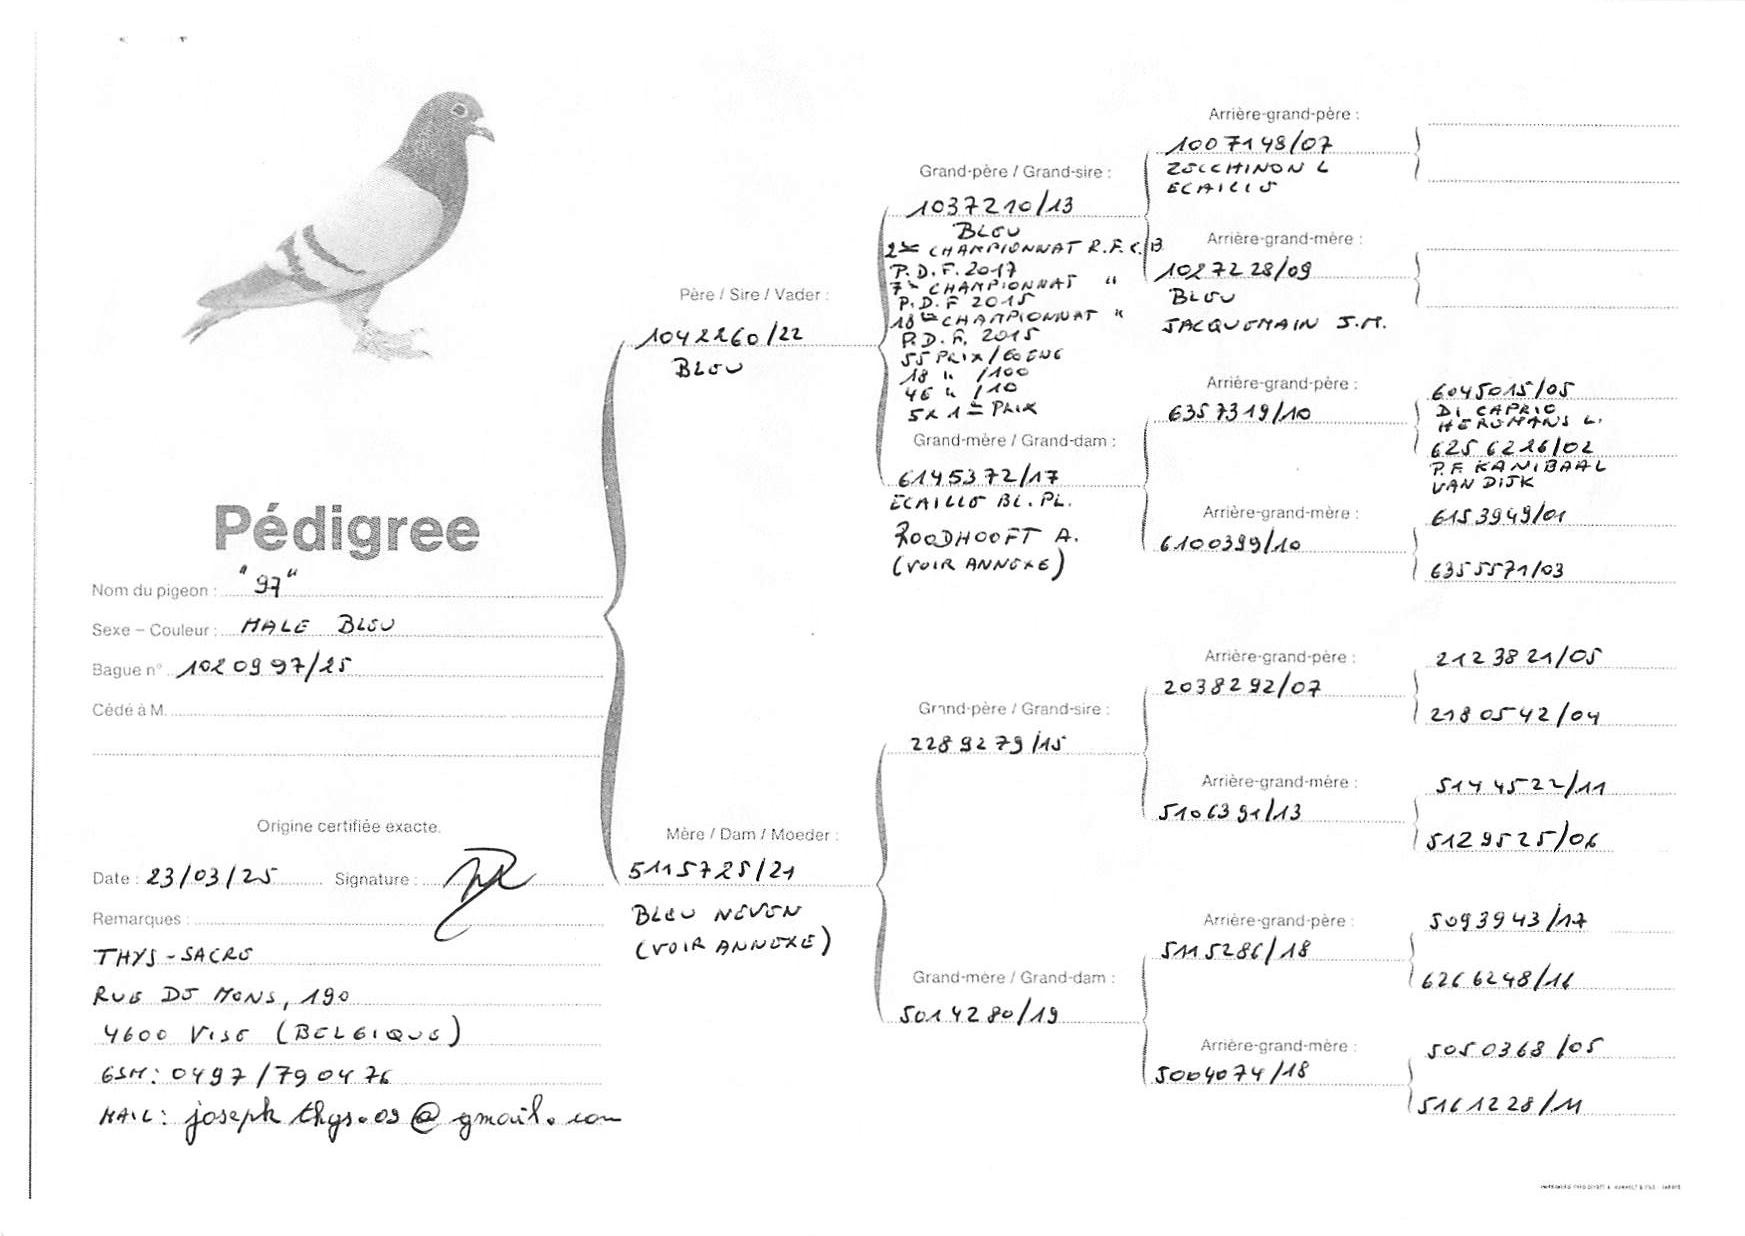 Pédigree
Nom du pigeon : "97"
Sexe – Couleur : MALE BLEU
Bague n° 1020997/25
Cédé à M.
Origine certifiée exacte.
Date : 23/03/25 Signature :
Remarques :
THYS-SACRE
RUE DE MONS, 190
4600 VISE (BELGIQUE)
GSM: 0497/790476
MAIL: joseph.thys.09@gmail.com
Père / Sire / Vader :
1042260/22
BLEU
Mère / Dam / Moeder :
5115725/21
BLEU NEVEN
(VOIR ANNEXE)
Grand-père / Grand-sire :
1037210/13
BLEU
2me CHAMPIONNAT R.F.C.B
P.D.F. 2017
7me CHAMPIONNAT "
P.D.F 2015
18me CHAMPIONNAT "
P.D.F. 2015
55 PRIX/60 ENG
18 " /100
46 " /10
5x 1er PRIX
Grand-mère / Grand-dam :
6145372/17
ECAILLE BL. PL.
ROODHOOFT A.
(VOIR ANNEXE)
Grand-père / Grand-sire :
2289279/15
Grand-mère / Grand-dam :
5014280/19
Arrière-grand-père :
1007148/07
ZECCHINON L
ECAILLE
Arrière-grand-mère :
1027228/09
BLEU
JACQUEMAIN J.M.
Arrière-grand-père :
6357319/10
Arrière-grand-mère :
6100399/10
Arrière-grand-père :
2038292/07
Arrière-grand-mère :
5106391/13
Arrière-grand-père :
5115286/18
Arrière-grand-mère :
5004074/18
6045015/05
DI CAPRIO
HEREMANS L.
6256226/02
P.F. KANIBAAL
VAN DIJK
6153949/01
6355571/03
2123821/05
2180542/04
5144522/11
5129525/06
5093943/17
6266248/16
5050368/05
5161228/11